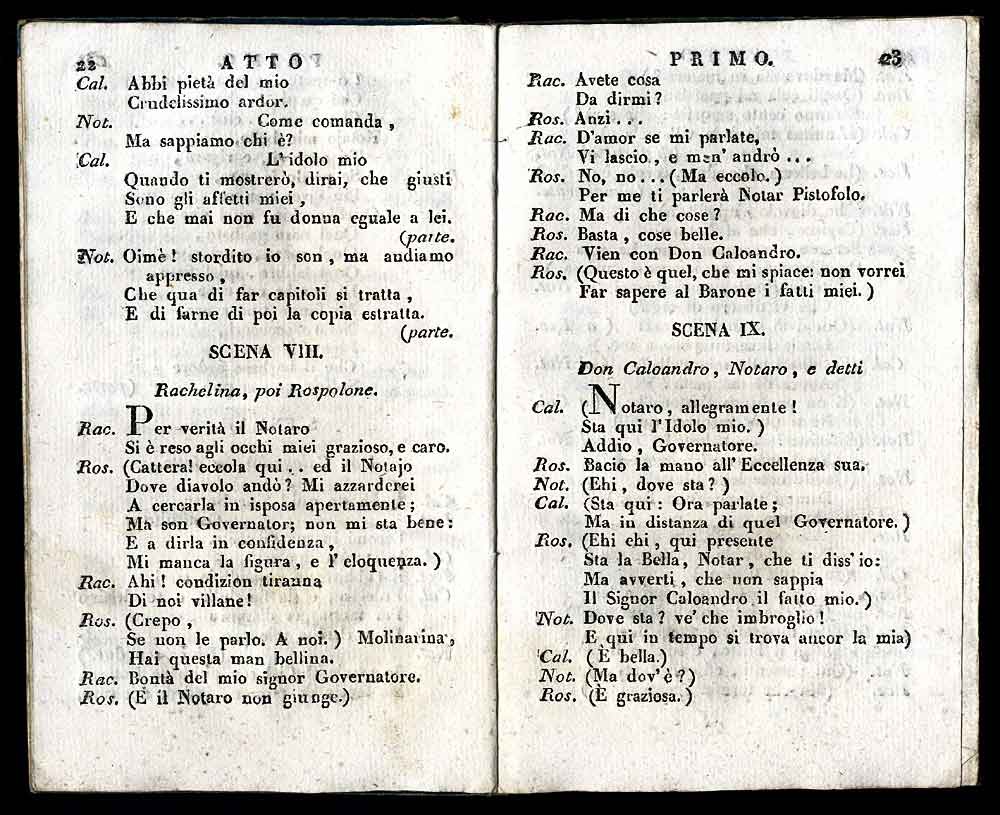 22 ATTO
Cal. Abbi pietà del mio
Crudelissimo ardor.
Not. Come comanda,
Ma sappiamo chi è?
Cal. L'idolo mio
Quando ti mostrerò, dirai, che giusti
Sono gli affetti miei,
E che mai non fu donna eguale a lei.
(parte.
Not. Oimè! stordito io son, ma andiamo
appresso,
Che qua di far capitoli si tratta,
E di farne di poi la copia estratta.
(parte.
SCENA VIII.
Rachelina, poi Rospolone.
Rac. Per verità il Notaro
Si è reso agli occhi miei grazioso, e caro.
Ros. (Cattera! eccola qui .. ed il Notajo
Dove diavolo andò? Mi azzarderei
A cercarla in isposa apertamente;
Ma son Governator; non mi sta bene:
E a dirla in confidenza,
Mi manca la figura, e l'eloquenza.)
Rac. Ahi! condizion tiranna
Di noi villane!
Ros. (Crepo,
Se non le parlo. A noi.) Molinarina,
Hai questa man bellina.
Rac. Bontà del mio signor Governatore.
Ros. (E il Notaro non giunge.)
PRIMO. 23
Rac. Avete cosa
Da dirmi?
Ros. Anzi ...
Rac. D'amor se mi parlate,
Vi lascio, e men' andrò ...
Ros. No, no ... (Ma eccolo.)
Per me ti parlerà Notar Pistofolo.
Rac. Ma di che cose?
Ros. Basta, cose belle.
Rac. Vien con Don Caloandro.
Ros. (Questo è quel, che mi spiace: non vorrei
Far sapere al Barone i fatti miei.)
SCENA IX.
Don Caloandro, Notaro, e detti
Cal. (Notaro, allegramente!
Sta qui l'Idolo mio.)
Addio, Governatore.
Ros. Bacio la mano all'Eccellenza sua.
Not. (Ehi, dove sta?)
Cal. (Sta qui: Ora parlate;
Ma in distanza di quel Governatore.)
Ros. (Ehi ehi, qui presente
Sta la Bella, Notar, che ti diss'io:
Ma avverti, che non sappia
Il Signor Caloandro il fatto mio.)
Not. Dove sta? ve' che imbroglio!
E qui in tempo si trova ancor la mia)
Cal. (È bella.)
Not. (Ma dov'è?)
Ros. (È graziosa.)